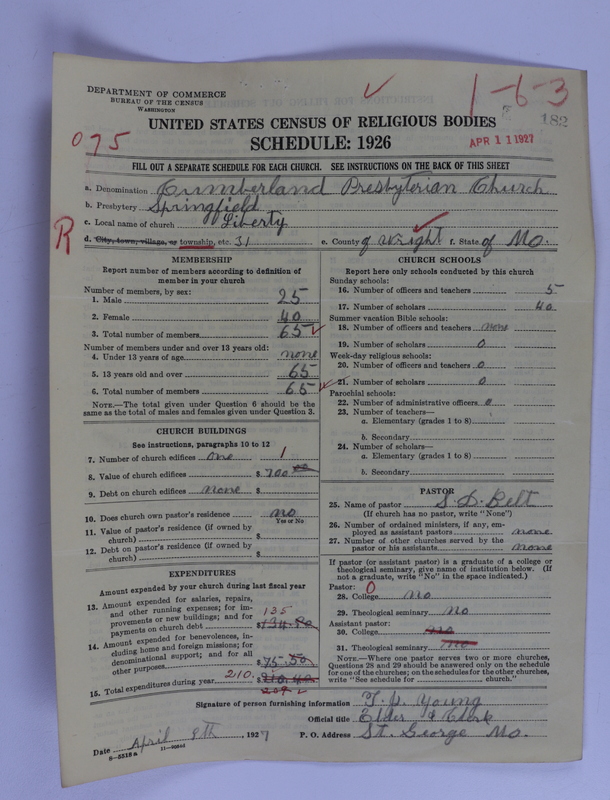 DEPARTMENT OF COMMERCE
BUREAU OF THE CENSUS
WASHINGTON
1-6-3
182
UNITED STATES CENSUS OF RELIGIOUS BODIES
075
SCHEDULE: 1926
APR 11 1927
FILL OUT A SEPARATE SCHEDULE FOR EACH CHURCH. SEE INSTRUCTIONS ON THE BACK OF THIS SHEET
a. Denomination Cumberland Presbyterian Church
b. Presbytery Springfield
c. Local name of church Liberty
R
d. City, town, village, or township, etc. 31 e. County of Wright f. State of Mo.
MEMBERSHIP
Report number of members according to definition of
member in your church
Number of members, by sex:
1. Male 25
2. Female 40
3. Total number of members 65
Number of members under and over 13 years old:
4. Under 13 years of age none
5. 13 years old and over 65
6. Total number of members 65
NOTE.—The total given under Question 6 should be the
same as the total of males and females given under Question 3.
CHURCH BUILDINGS
See instructions, paragraphs 10 to 12
7. Number of church edifices one 1
8. Value of church edifices $ 700 00
9. Debt on church edifices none $
10. Does church own pastor's residence? no
Yes or No
11. Value of pastor's residence (if owned by
church) $
12. Debt on pastor's residence (if owned by
church) $
EXPENDITURES
Amount expended by your church during last fiscal year
13. Amount expended for salaries, repairs,
and other running expenses; for im-
provements or new buildings; and for
payments on church debt 135
$134.90
14. Amount expended for benevolences, in-
cluding home and foreign missions; for
denominational support; and for all
other purposes $75.50
15. Total expenditures during year 210. $210.40
209
CHURCH SCHOOLS
Report here only schools conducted by this church
Sunday schools:
16. Number of officers and teachers 5
17. Number of scholars 40
Summer vacation Bible schools:
18. Number of officers and teachers none
19. Number of scholars 0
Week-day religious schools:
20. Number of officers and teachers 0
21. Number of scholars 0
Parochial schools:
22. Number of administrative officers 0
23. Number of teachers—
a. Elementary (grades 1 to 8)
b. Secondary
24. Number of scholars—
a. Elementary (grades 1 to 8)
b. Secondary
PASTOR
25. Name of pastor S. D. Belt
(If church has no pastor, write "None")
26. Number of ordained ministers, if any, em-
ployed as assistant pastors none
27. Number of other churches served by the
pastor or his assistants none
If pastor (or assistant pastor) is a graduate of a college or
theological seminary, give name of institution below. (If
not a graduate, write "No" in the space indicated.)
Pastor: 0
28. College No
29. Theological seminary No
Assistant pastor:
30. College no
31. Theological seminary no
NOTE.—Where one pastor serves two or more churches,
Questions 28 and 29 should be answered only on the schedule
for one of the churches; on the schedules for the other churches,
write "See schedule for church."
Signature of person furnishing information T. Y. Young
Official title Elder & Clerk
Date April 9th, 1927 P. O. Address St. George Mo.
8-5518 a